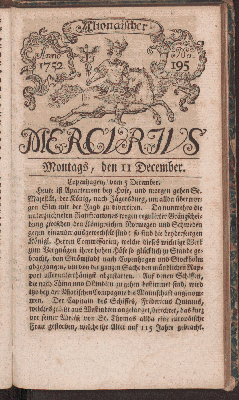 Altonaischer
Anno
1752
No.
195
MERCURIUS
Montags, den 11 December.
Copenhagen, vom 5 December.
Heute ist Apartement bey Hofe, und morgen gehen Se.
Majestät, der König, nach Jägersburg, um allda übermor-
gen Sich mit der Jagd zu divertiren. Da nunmehro die
unterzeichneten Ratificationes wegen regulirter Gränzschei-
dung zwischen den Königreichen Norwegen und Schweden
gegen einander ausgewechselt sind: so sind die beyderseitigen
Königl. Herren Commissarien, welche dieses wichtige Werk
zum Vergnügen ihrer hohen Höfe so glücklich zu Stande ge-
bracht, von Strömstadt nach Copenhagen und Stockholm
abgegangen, um von der ganzen Sache den mündlichen Rap-
port allerunterthänigst abzustatten. Auf denen Schiffen,
die nach China und Ostindien zu gehen bestimmet sind, wird
itzo bey der Asiatischen Compagnie die Mannschaft angenom-
men. Der Capitain des Schiffes, Fridericus Quintus,
welches jüngst aus Westindien angelanget, berichtet, daß kurz
vor seiner Abreise von St. Thomas allda eine
Frau gestorben, welche ihr Alter auf 115 Jahre gebracht.